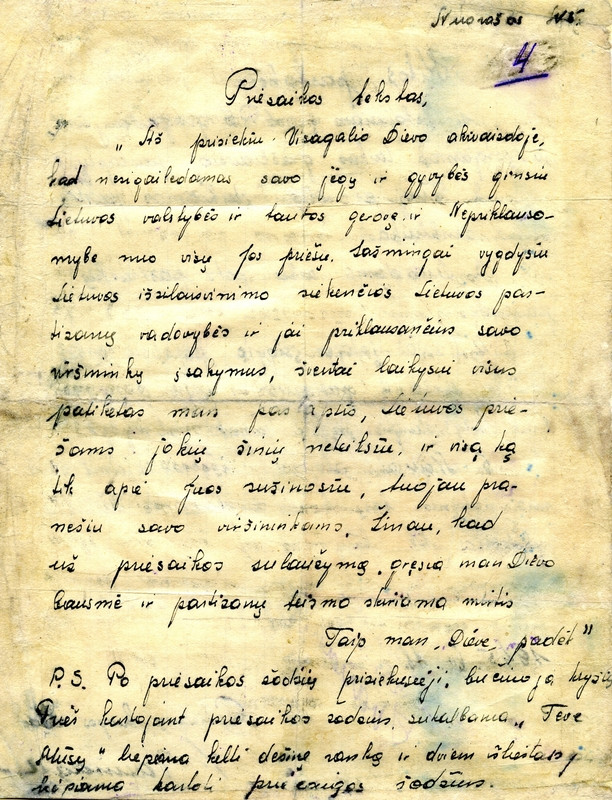 Nuorašas
4
Priesaikos tekstas,
„Aš prisiekiu Visagalio Dievo akivaizdoje,
kad nesigailėdamas savo jėgų ir gyvybės ginsiu
Lietuvos valstybės ir tautos gerovę ir Nepriklauso-
mybę nuo visų jos priešų. Sąžiningai vygdysiu
Lietuvos išsilaisvinimo siekenčios Lietuvos par-
tizanų vadovybės ir jai priklausančius savo
viršininkų įsakymus, šventai laikysiu visas
patikėtas man paslaptis, Lietuvos prie-
šams jokių žinių neteiksiu, ir visą ką
tik apie juos sužinosiu, tuojau pra-
nešiu savo viršininkams. Žinau, kad
už priesaikos sulaužymą gręsia man Dievo
bausmė ir partizanų teismo skiriama mirtis
Taip man „Dieve, padėk"
P.S. Po priesaikos žodžių prisiekusieji bučiuoja kryžių
Prieš kartojant priesaikos žodžius sukalbama „Tėve
Mūsų" liepiama kelti dešinę ranką ir dviem ištiestais
liepiama kartoti žodžius.